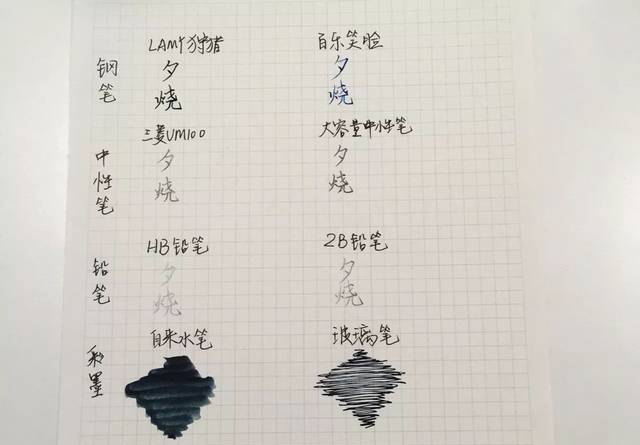 LAMY狩猎 百乐笑脸
钢笔
夕 夕
烧 烧
三菱UM100 大容量中性笔
中性笔
夕 夕
烧 烧
HB铅笔 2B铅笔
铅笔
夕 夕
烧 烧
自来水笔 玻璃笔
彩墨